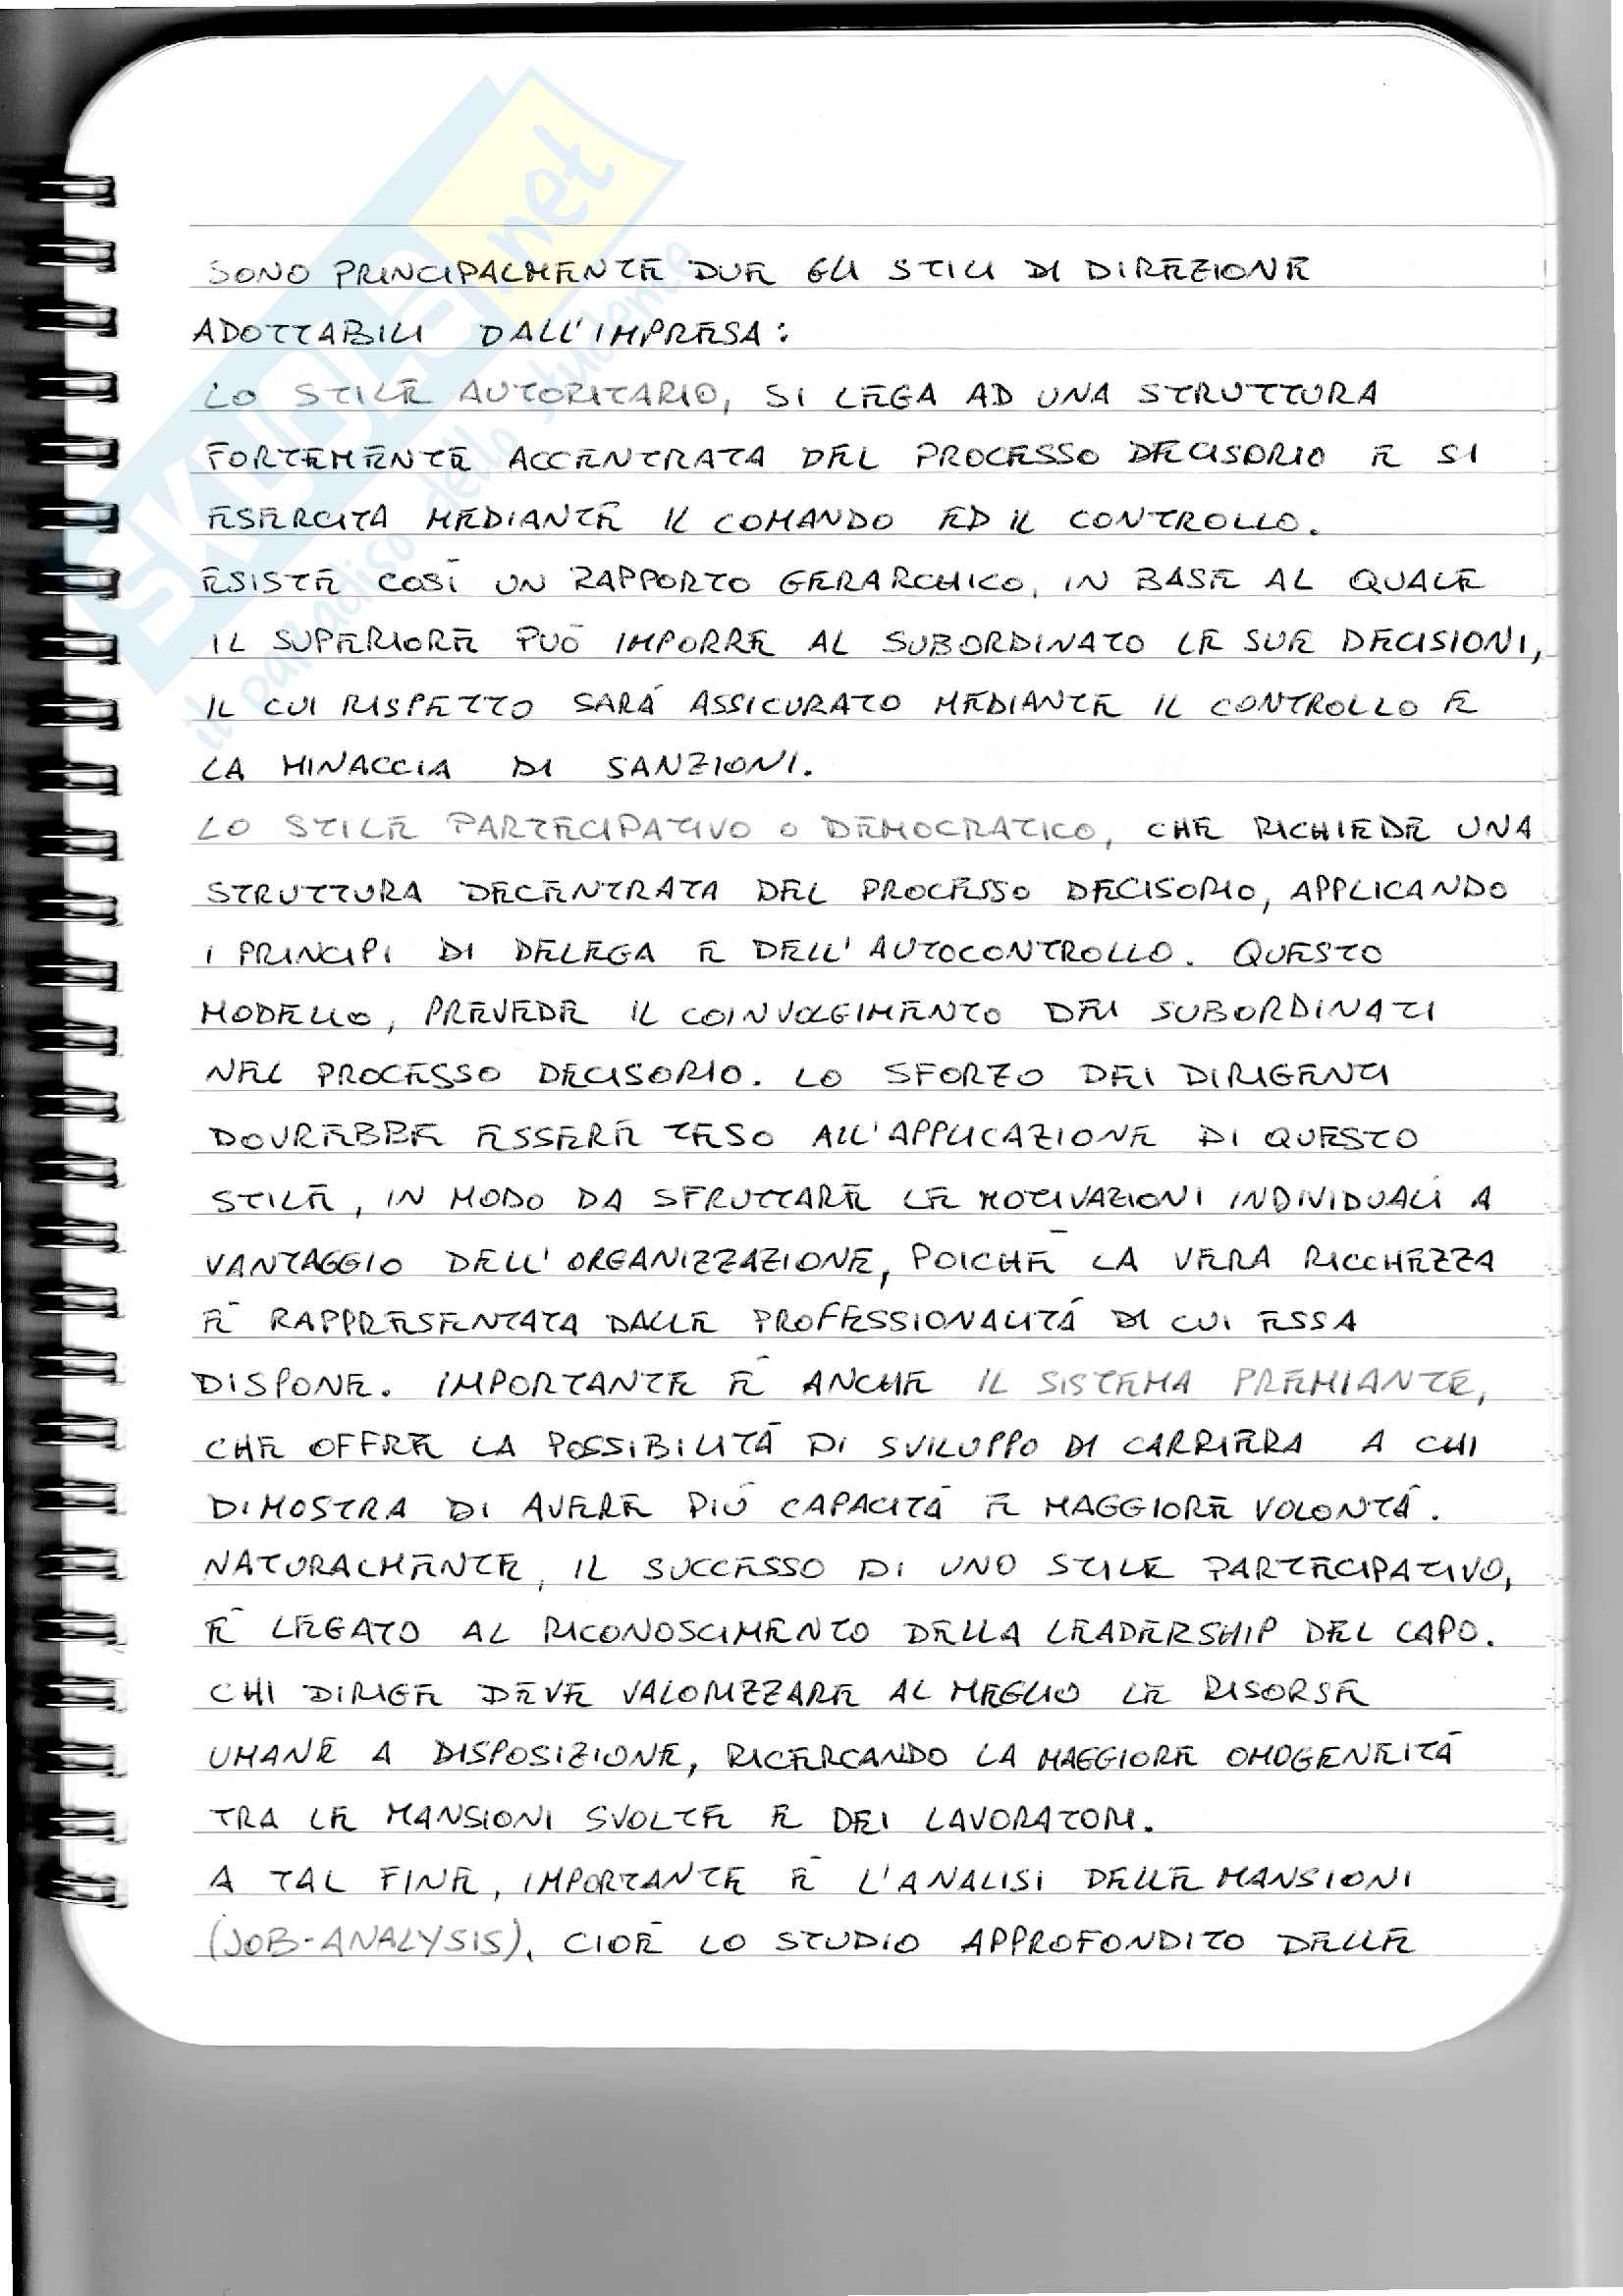 SKUOLA.net
il paradiso dello studente
SONO PRINCIPALMENTE DUE GLI STILI DI DIREZIONE
ADOTTABILI DALL'IMPRESA:
LO STILE AUTORITARIO, SI LEGA AD UNA STRUTTURA
FORTEMENTE ACCENTRATA DEL PROCESSO DECISORIO E SI
ESERCITA MEDIANTE IL COMANDO ED IL CONTROLLO.
ESISTE COSÌ UN RAPPORTO GERARCHICO, IN BASE AL QUALE
IL SUPERIORE PUÒ IMPORRE AL SUBORDINATO LE SUE DECISIONI,
IL CUI RISPETTO SARÁ ASSICURATO MEDIANTE IL CONTROLLO E
LA MINACCIA DI SANZIONI.
LO STILE PARTECIPATIVO O DEMOCRATICO, CHE RICHIEDE UNA
STRUTTURA DECENTRATA DEL PROCESSO DECISORIO, APPLICANDO
I PRINCIPI DI DELEGA E DELL'AUTOCONTROLLO. QUESTO
MODELLO, PREVEDE IL COINVOLGIMENTO DEI SUBORDINATI
NEL PROCESSO DECISORIO. LO SFORZO DEI DIRIGENTI
DOVREBBE ESSERE TESO ALL'APPLICAZIONE DI QUESTO
STILE, IN MODO DA SFRUTTARE LE MOTIVAZIONI INDIVIDUALI A
VANTAGGIO DELL'ORGANIZZAZIONE, POICHÉ LA VERA RICCHEZZA
È RAPPRESENTATA DALLE PROFESSIONALITÁ DI CUI ESSA
DISPONE. IMPORTANTE È ANCHE IL SISTEMA PREMIANTE,
CHE OFFRE LA POSSIBILITÁ DI SVILUPPO DI CARRIERA A CHI
DIMOSTRA DI AVERE PIÚ CAPACITÁ E MAGGIORE VOLONTÁ.
NATURALMENTE, IL SUCCESSO DI UNO STILE PARTECIPATIVO,
È LEGATO AL RICONOSCIMENTO DELLA LEADERSHIP DEL CAPO.
CHI DIRIGE DEVE VALORIZZARE AL MEGLIO LE RISORSE
UMANE A DISPOSIZIONE, RICERCANDO LA MAGGIORE OMOGENEITÁ
TRA LE MANSIONI SVOLTE E DEI LAVORATORI.
A TAL FINE, IMPORTANTE È L'ANALISI DELLE MANSIONI
(JOB-ANALYSIS), CIOÈ LO STUDIO APPROFONDITO DELLE